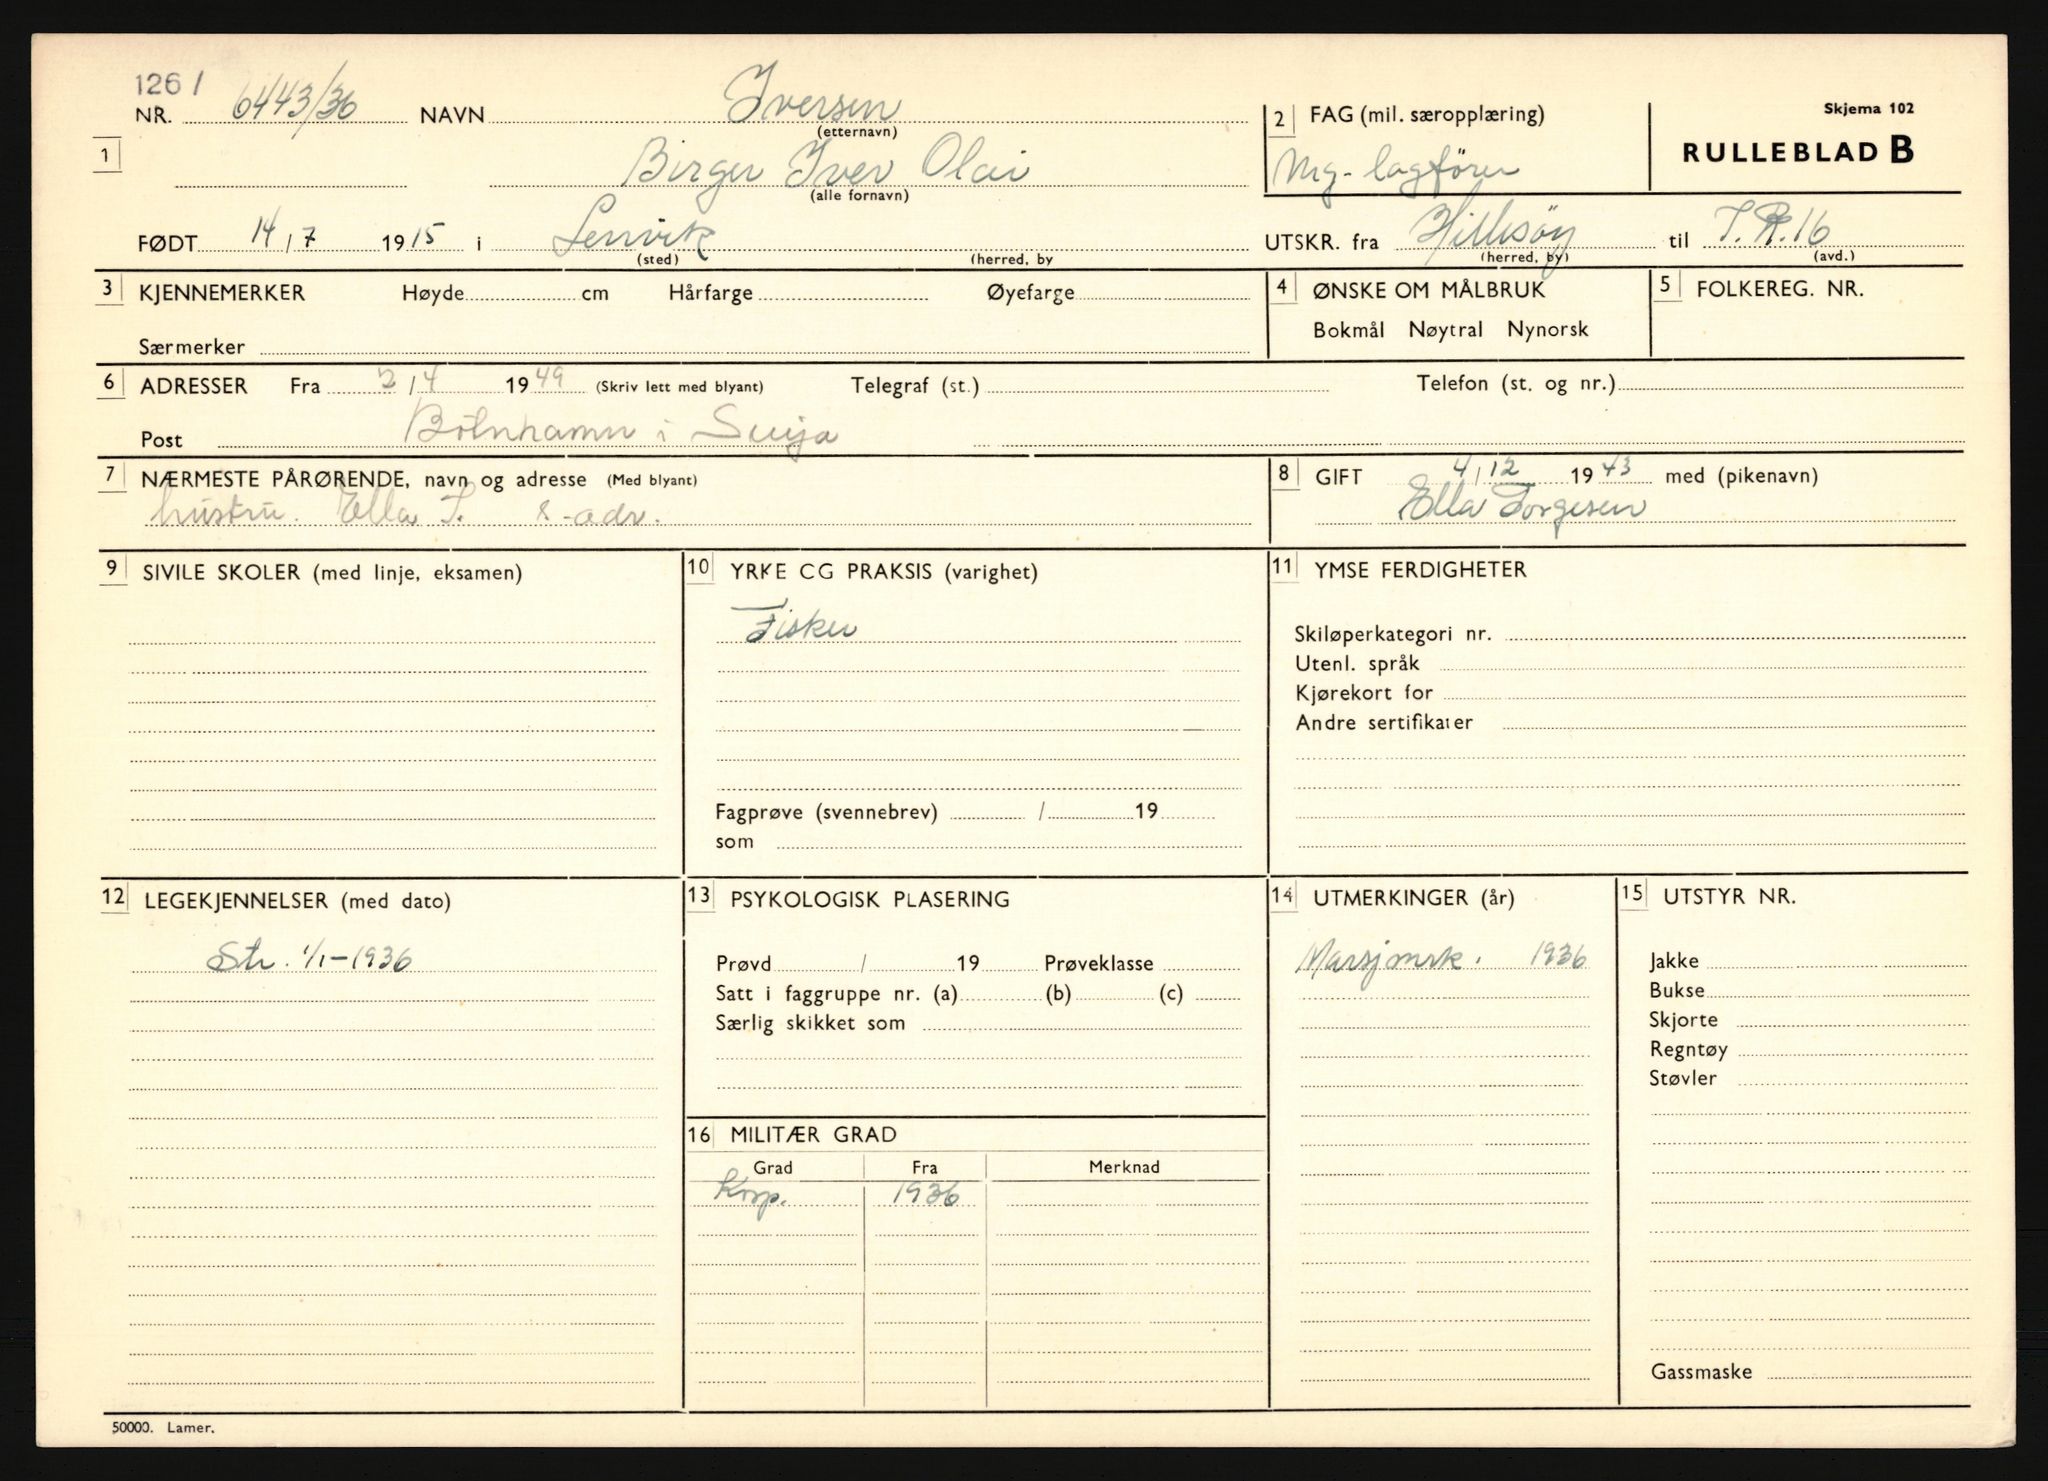 1261
NR. 6443/36 NAVN Iversen
(etternavn)
1 Birger Iver Olai
(alle fornavn)
2 FAG (mil. særopplæring)
Mg-lagfører
Skjema 102
RULLEBLAD B
FØDT 14/7 1915 i Lenvik
(sted) (herred, by
UTSKR. fra Hillesøy til I.R.16
(herred, by) (avd.)
3 KJENNEMERKER Høyde cm Hårfarge Øyefarge
Særmerker
4 ØNSKE OM MÅLBRUK
Bokmål Nøytral Nynorsk
5 FOLKEREG. NR.
6 ADRESSER Fra 2/4 1949 (Skriv lett med blyant) Telegraf (st.) Telefon (st. og nr.)
Post i Senja
7 NÆRMESTE PÅRØRENDE, navn og adresse (Med blyant)
hustru. Ella I. s-adr.
8 GIFT 4/12 1943 med (pikenavn)
Ella Torgesen
9 SIVILE SKOLER (med linje, eksamen)
10 YRKE CG PRAKSIS (varighet)
Fisker
Fagprøve (svennebrev) / 19
som
11 YMSE FERDIGHETER
Skiløperkategori nr.
Utenl. språk
Kjørekort for
Andre sertifikater
12 LEGEKJENNELSER (med dato)
Str. 1/1-1936
13 PSYKOLOGISK PLASERING
Prøvd / 19 Prøveklasse
Satt i faggruppe nr. (a) (b) (c)
Særlig skikket som
14 UTMERKINGER (år)
Marsjmrk. 1936
15 UTSTYR NR.
Jakke
Bukse
Skjorte
Regntøy
Støvler
Gassmaske
16 MILITÆR GRAD
Grad Fra Merknad
Korp. 1936
50000. Lamer.